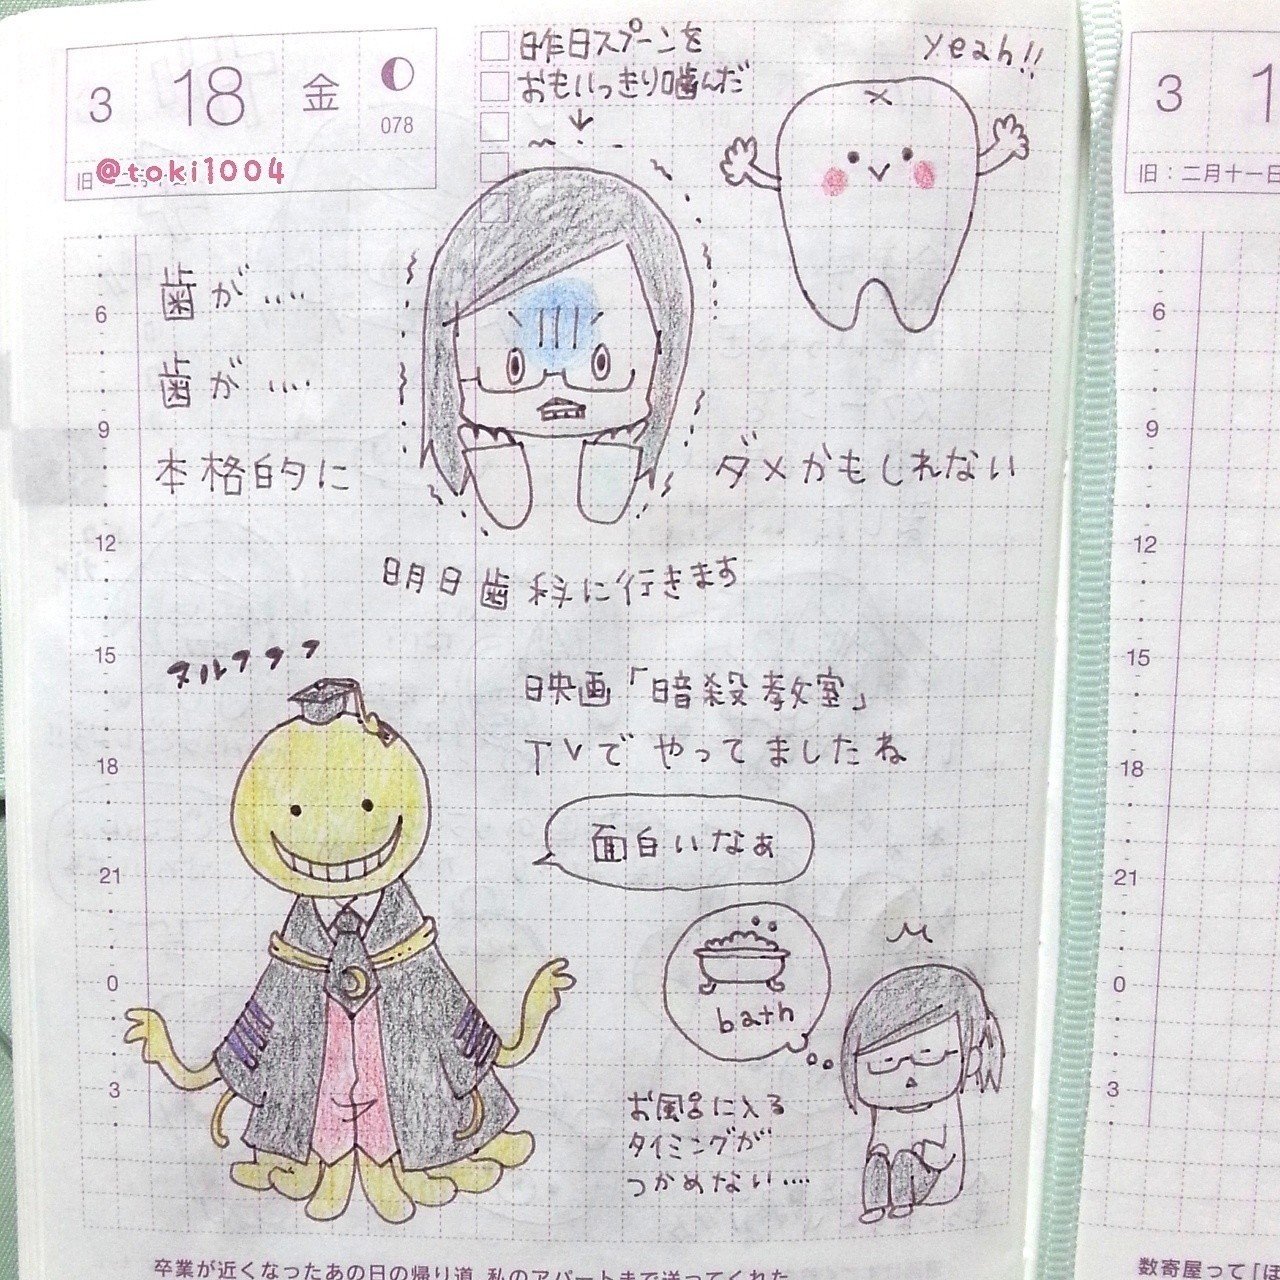 3 18 金
078
@toki1004
昨日スプーンを
おもいっきり噛んだ
yeah!!
歯が....
歯が....
本格的に
ダメかもしれない
明日歯科に行きます
ヌルフフフ
映画「暗殺教室」
TVでやってましたね
面白いなぁ
bath
お風呂に入る
タイミングが
つかめない....
6
9
12
15
18
21
0
3
卒業が近くなったあの日の帰り道、私のアパートまで送ってくれた
3 1
旧:二月十一日
6
9
12
15
18
21
0
3
数寄屋って「ほ